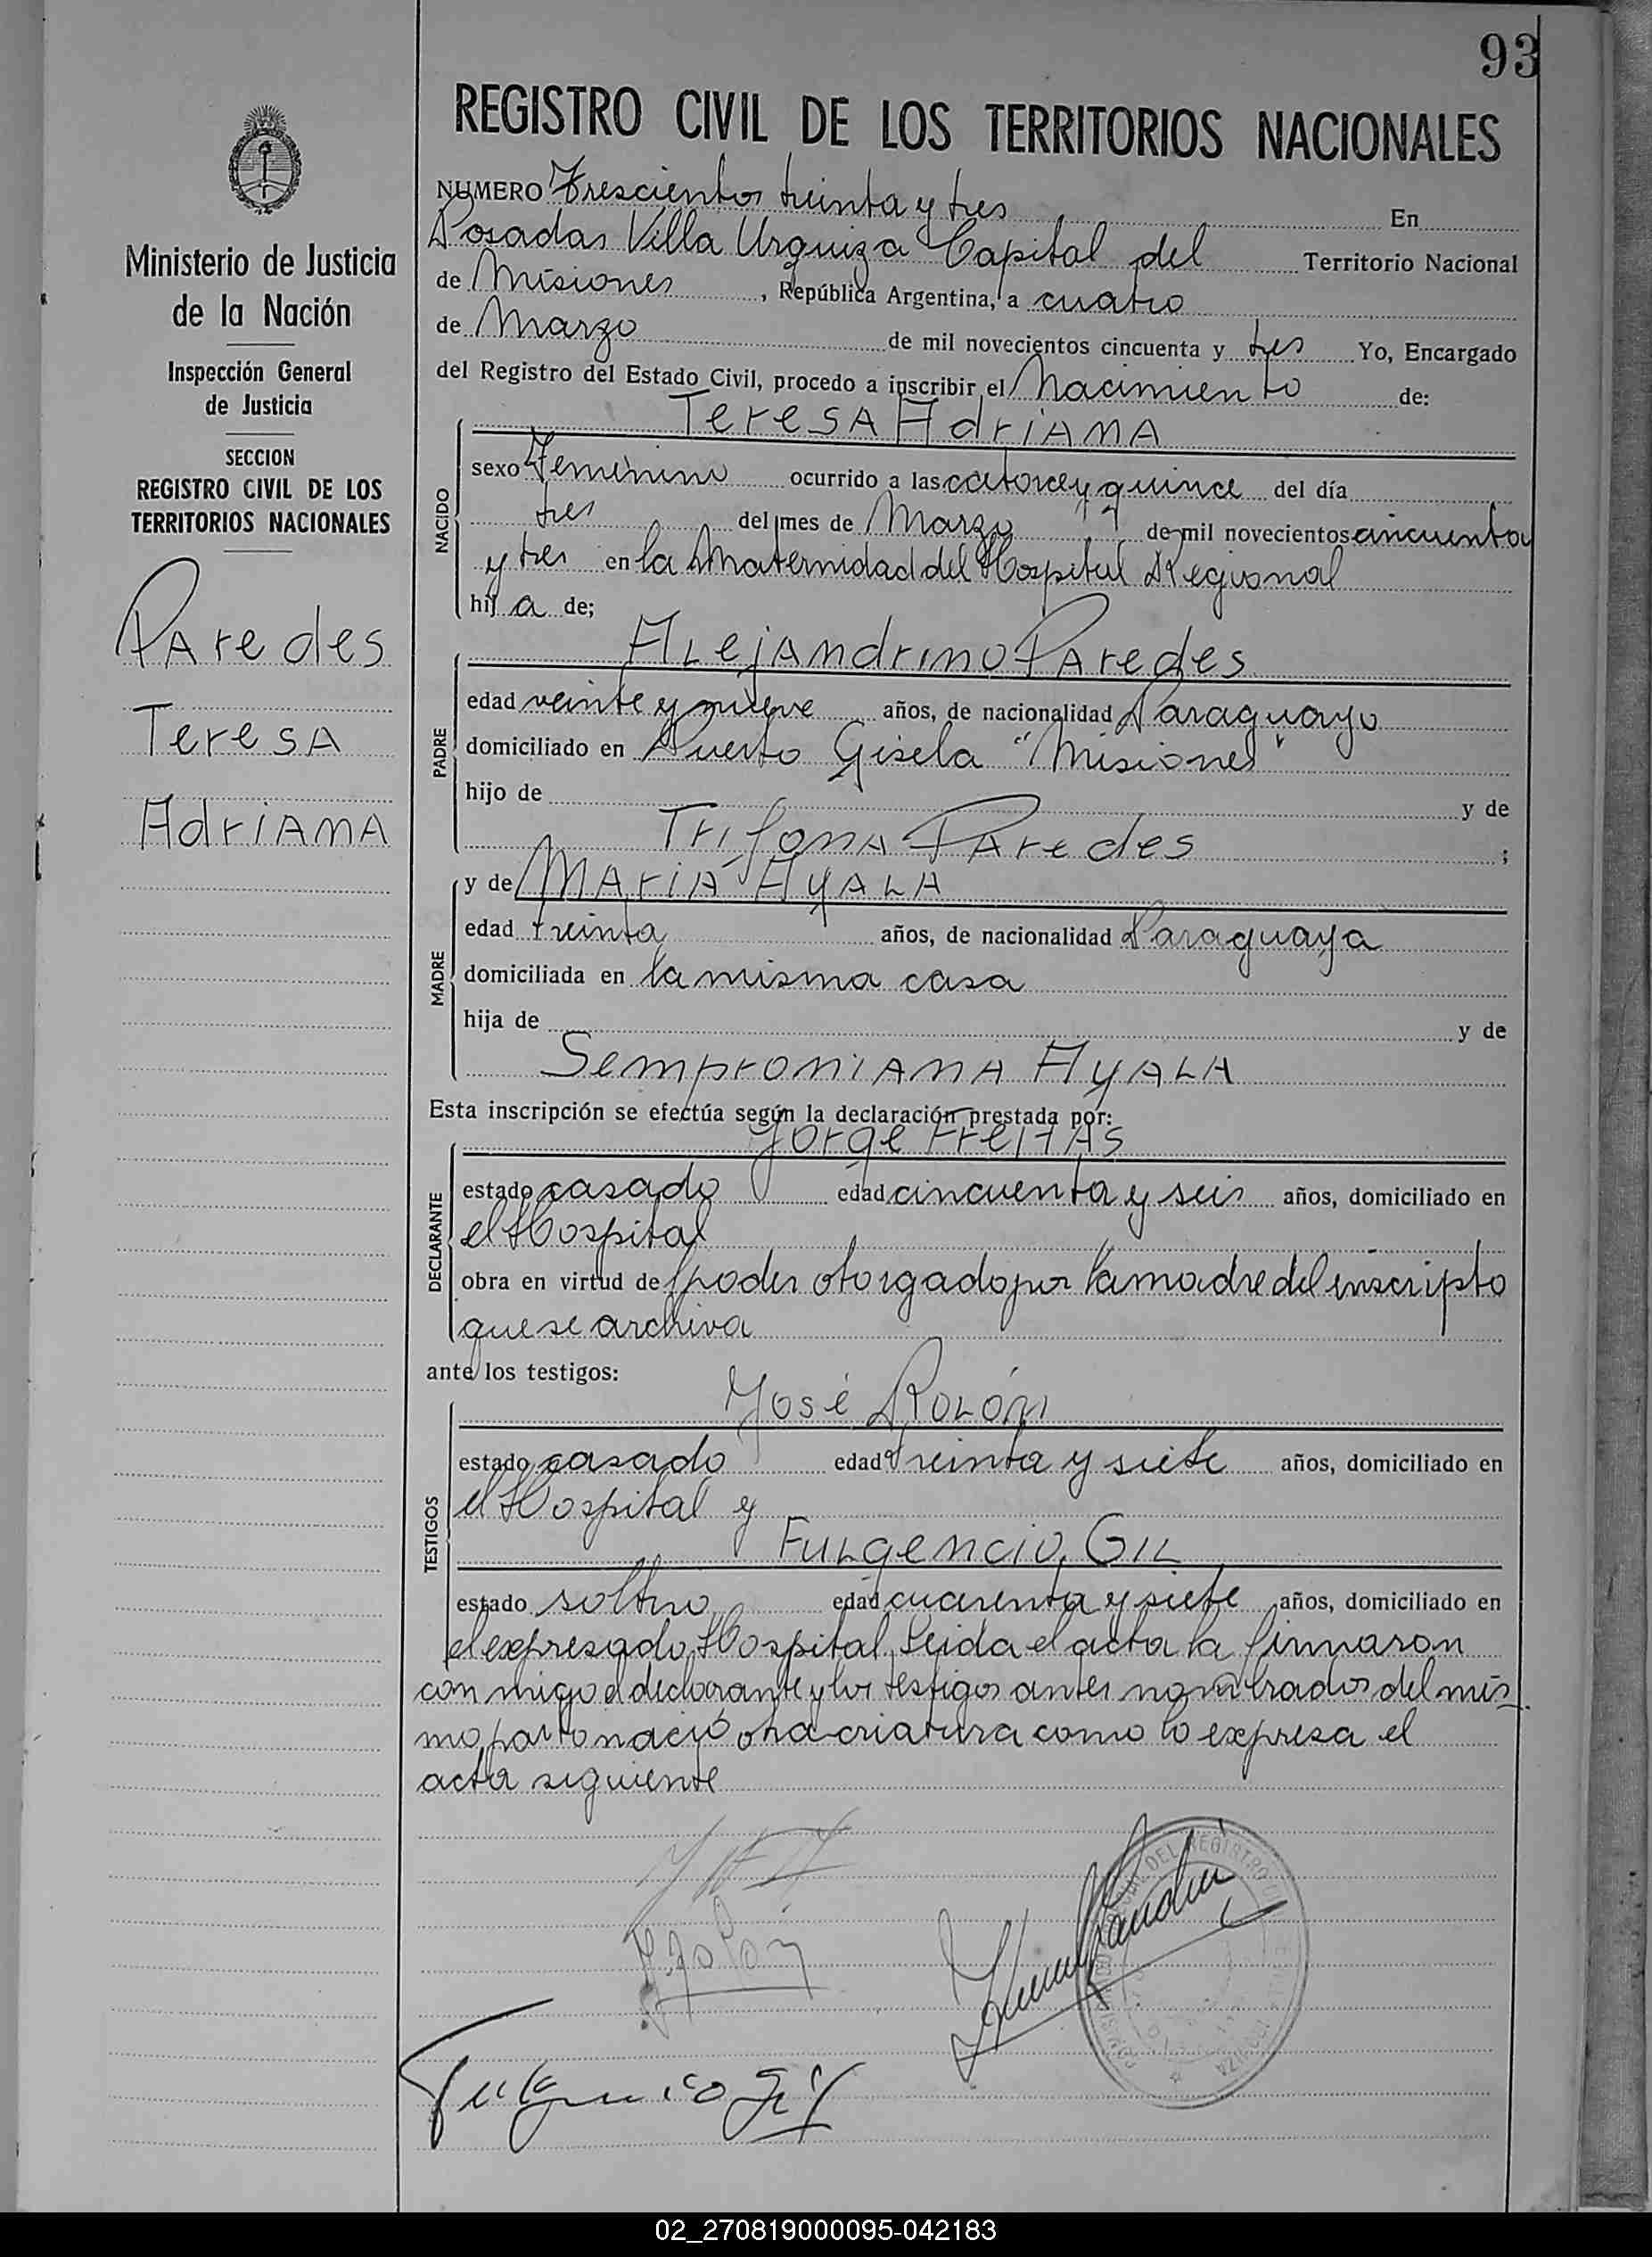 93
REGISTRO CIVIL DE LOS TERRITORIOS NACIONALES
Ministerio de Justicia
de la Nación
Inspección General
de Justicia
SECCION
REGISTRO CIVIL DE LOS
TERRITORIOS NACIONALES
Paredes
Teresa
Adriana
NUMERO Trescientos treinta y tres En
Posadas Villa Urquiza Capital del Territorio Nacional
de Misiones, República Argentina, a cuatro
de Marzo de mil novecientos cincuenta y tres Yo, Encargado
del Registro del Estado Civil, procedo a inscribir el Nacimiento de:
NACIDO
Teresa Adriana
sexo Femenino ocurrido a las catorce y quince del día
tres del mes de Marzo de mil novecientos cincuenta
y tres en la Maternidad del Hospital Regional
hij a de;
PADRE
Alejandrino Paredes
edad veinte y nueve años, de nacionalidad Paraguayo
domiciliado en Puerto Gisela "Misiones"
hijo de y de
Trifona Paredes ;
MADRE
y de Maria Ayala
edad treinta años, de nacionalidad Paraguaya
domiciliada en la misma casa
hija de y de
Semproniana Ayala
Esta inscripción se efectúa según la declaración prestada por:
DECLARANTE
Jorge Freitas
estado casado edad cincuenta y seis años, domiciliado en
el Hospital
obra en virtud de poder otorgado por la madre del inscripto
que se archiva
ante los testigos:
TESTIGOS
José Rolón
estado casado edad treinta y siete años, domiciliado en
el Hospital y
Fulgencio Gil
estado soltero edad cuarenta y siete años, domiciliado en
el expresado Hospital. Leida el acta la firmaron
con migo el declarante y los testigos antes nombrados del mis
mo parto nació otra criatura como lo expresa el
acta siguiente
J Rolón
Fulgencio Gil
DEL REGISTRO
02_270819000095-042183